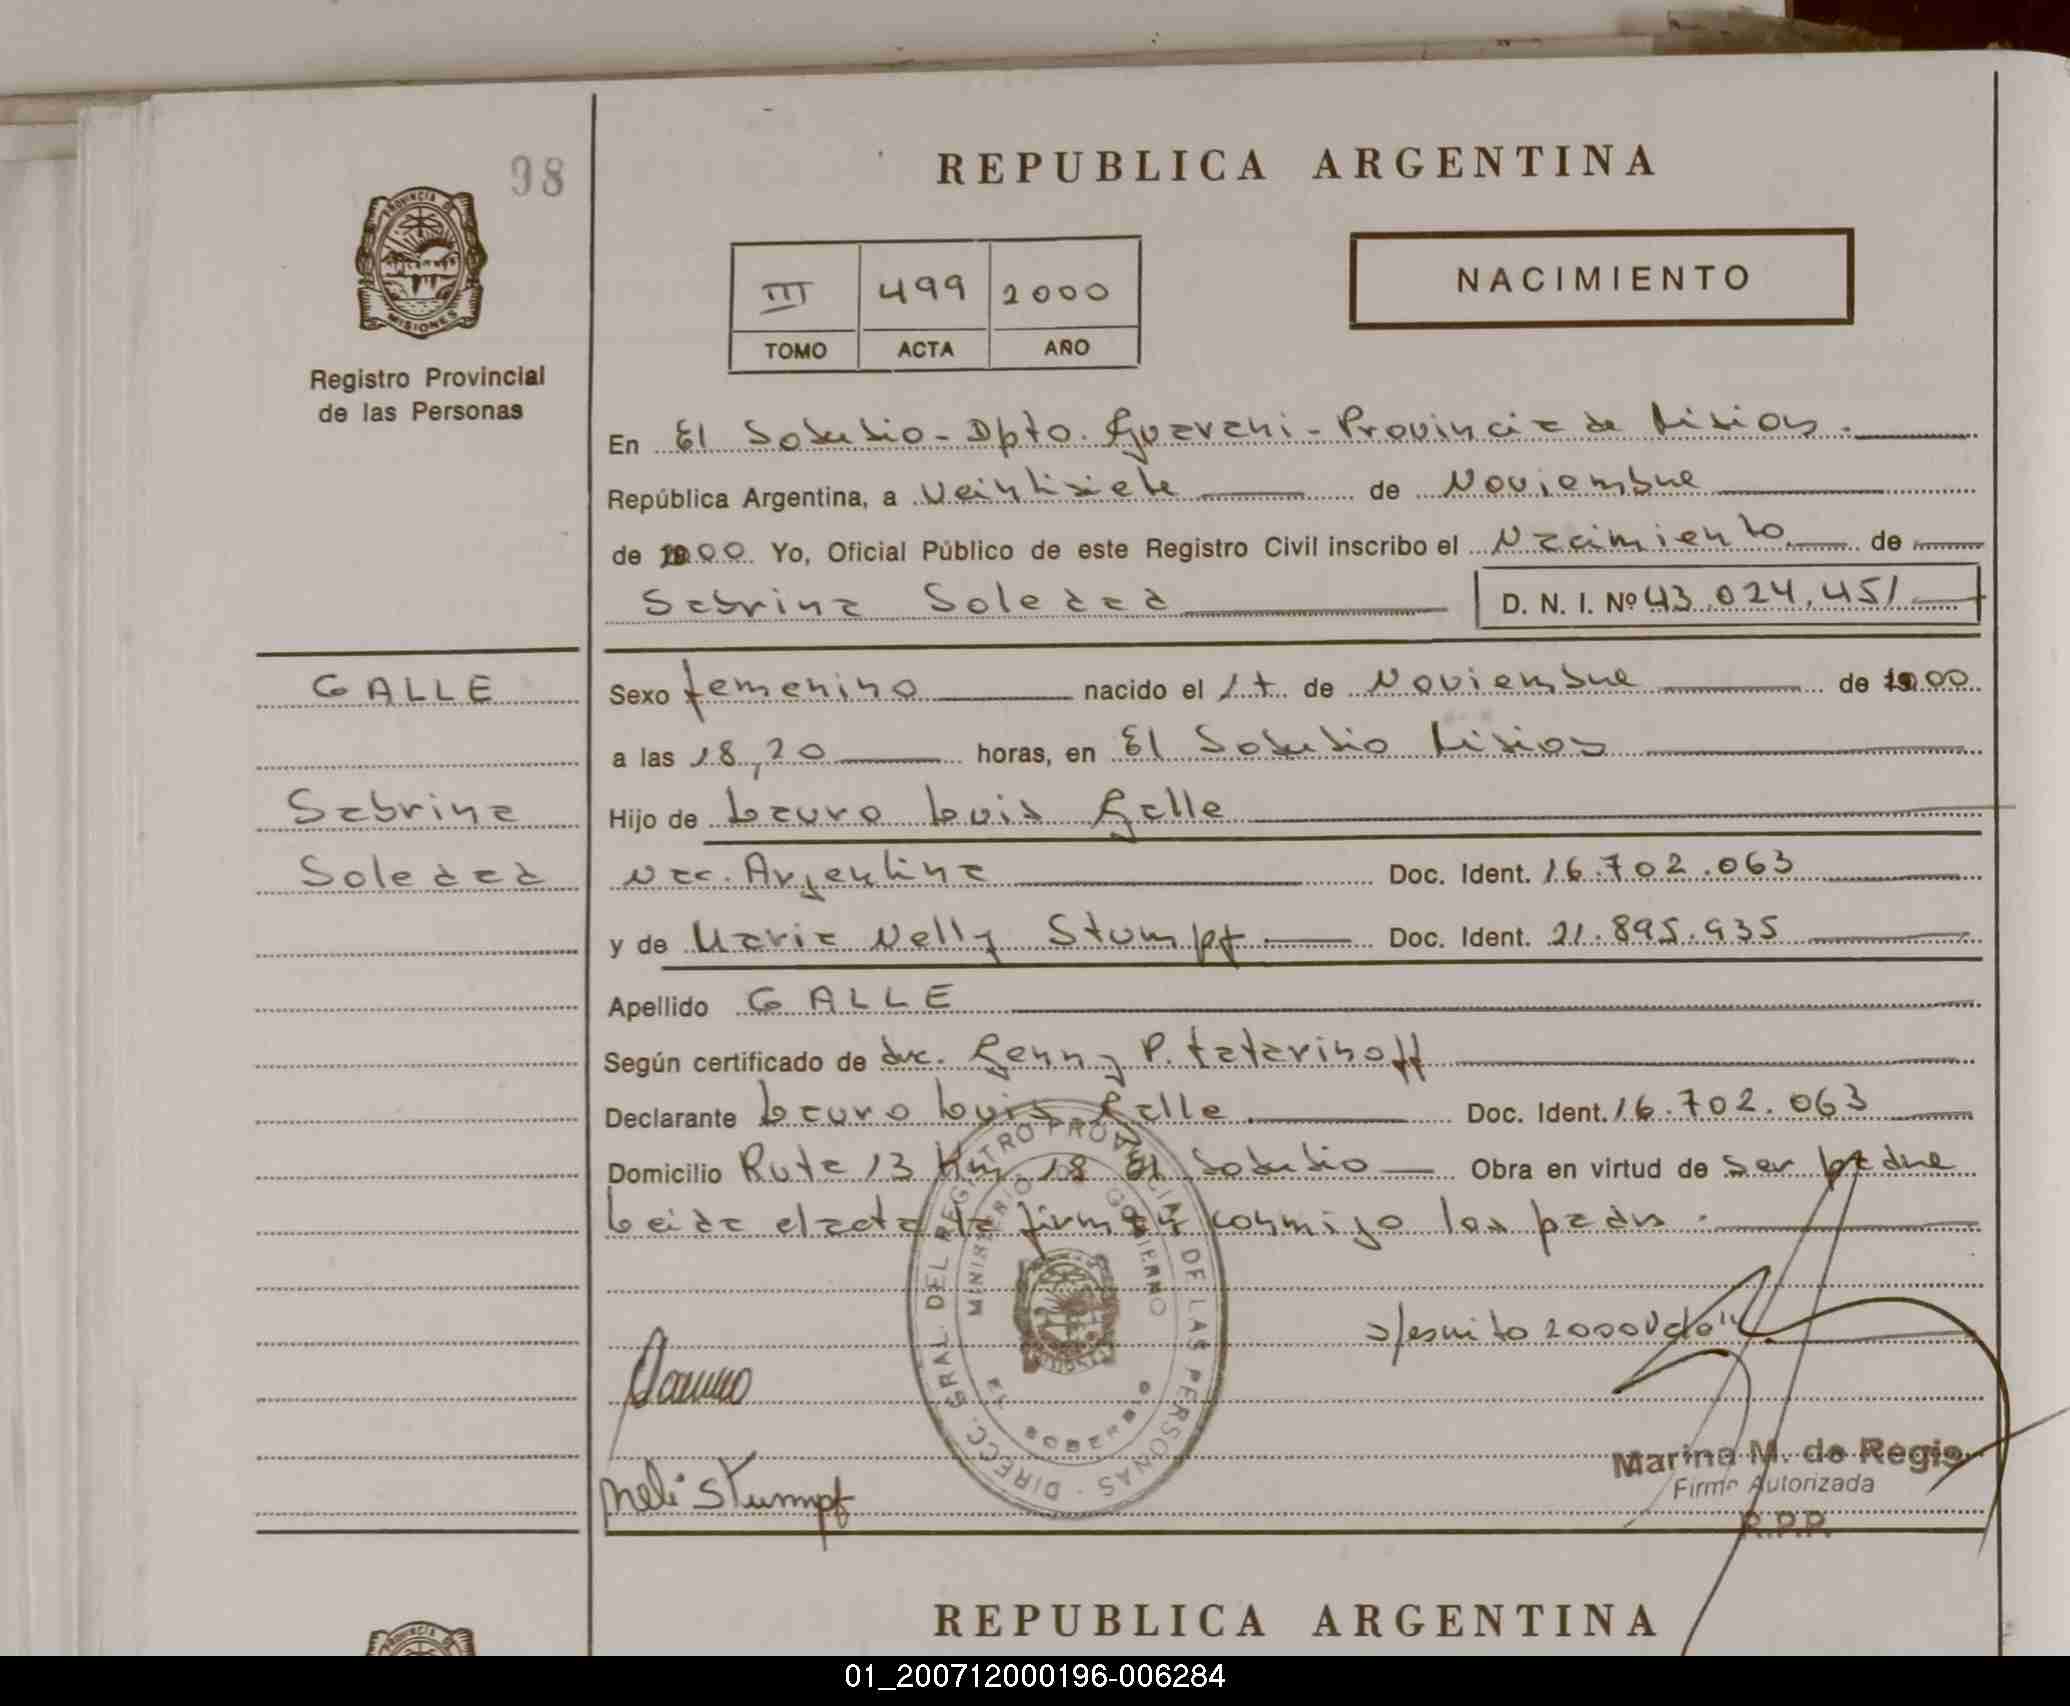 98
REPUBLICA ARGENTINA
PROVINCIA DE
MISIONES
III 499 2000
TOMO ACTA AÑO
NACIMIENTO
Registro Provincial
de las Personas
En El Soberbio - Dpto. Guarani - Provincia de Misiones.
República Argentina, a Veintisiete de Noviembre
de 2000 Yo, Oficial Público de este Registro Civil inscribo el Nacimiento de
Sabrina Soledad D. N. I. Nº 43.024.451
GALLE
Sexo femenino nacido el 17 de Noviembre de 2000
a las 18,20 horas, en El Soberbio Misiones
Sabrina
Hijo de Lauro Luis Galle
Soledad
Nac. Argentina Doc. Ident. 16.702.063
y de Maria Nelly Stumpf Doc. Ident. 21.895.935
Apellido GALLE
Según certificado de Genny P. Tatarinoff
Declarante Lauro Luis Galle Doc. Ident. 16.702.063
Domicilio Ruta 13 Km 18 El Soberbio Obra en virtud de ser padre
Leida el acta la firman conmigo los padres.
DIRECC. GRAL. DEL REGISTRO PROVINCIAL DE LAS PERSONAS
MINISTERIO DE GOBIERNO
MISIONES
s/escrito 2000 Vale"
Neli Stumpf
Marina M. de Regis
Firma Autorizada
R.P.P.
REPUBLICA ARGENTINA
01_200712000196-006284